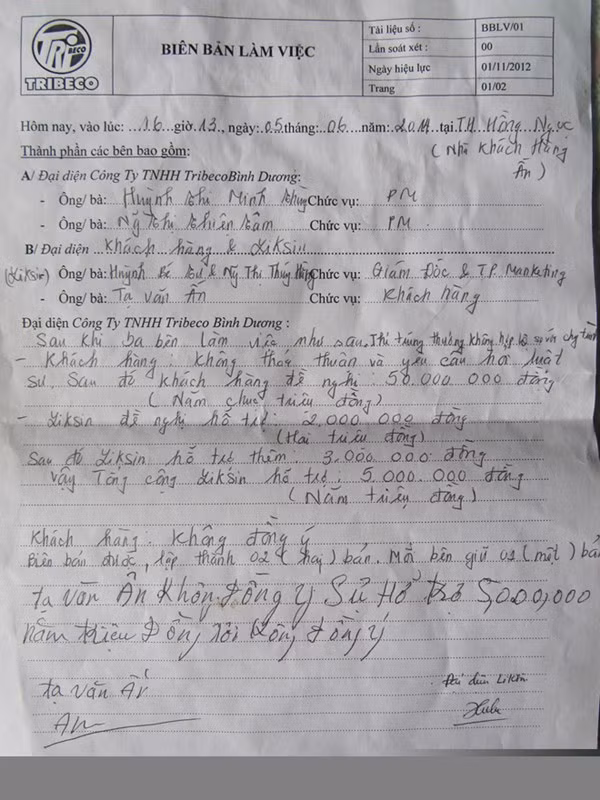 TRIBECO
TRIBECO
BIÊN BẢN LÀM VIỆC
Tài liệu số : BBLV/01
Lần soát xét : 00
Ngày hiệu lực 01/11/2012
Trang 01/02
Hôm nay, vào lúc: 16 giờ 13, ngày: 05 tháng: 06 năm: 2014 tại TX Hồng Ngự
Thành phần các bên bao gồm: (Nhà Khách Hàng Ấn)
A/ Đại diện Công Ty TNHH TribecoBình Dương:
- Ông/ bà: Huỳnh thị Minh thùy Chức vụ: PM
- Ông/ bà: Ng thị thiên tâm Chức vụ: PM
B/ Đại diện Khách hàng & Liksin
(Liksin) Ông/ bà: Huỳnh & Ng Thị Thúy Hằng Chức vụ: Giám Đốc & T.P. Marketing
- Ông/ bà: Tạ Văn Ấn Chức vụ: Khách hàng
Đại diện Công Ty TNHH Tribeco Bình Dương :
Sau khi ba bên làm việc như sau. Thì trúng thưởng không hợp lệ so với chương trình
- Khách hàng : không thỏa thuận và yêu cầu hỏi luật
sư. Sau đó khách hàng đề nghị : 50.000 000 đồng
(Năm chục triệu đồng)
- Liksin đề nghị hổ trợ : 2.000 000 đồng
(Hai triệu đồng)
Sau đó Liksin hổ trợ thêm : 3.000 000 đồng
Vậy Tổng cộng Liksin hổ trợ : 5 000. 000 đồng
(Năm triệu đồng)
Khách hàng : Không đồng ý
Biên bản được lập thành 02 (hai) bản. Mỗi bên giữ 01 (một) bản
tạ văn Ấn Không Đồng Ý Sự Hổ trợ 5000,000
năm triệu Đồng tôi không Đồng ý
tạ văn Ấn
Đại diện Liksin